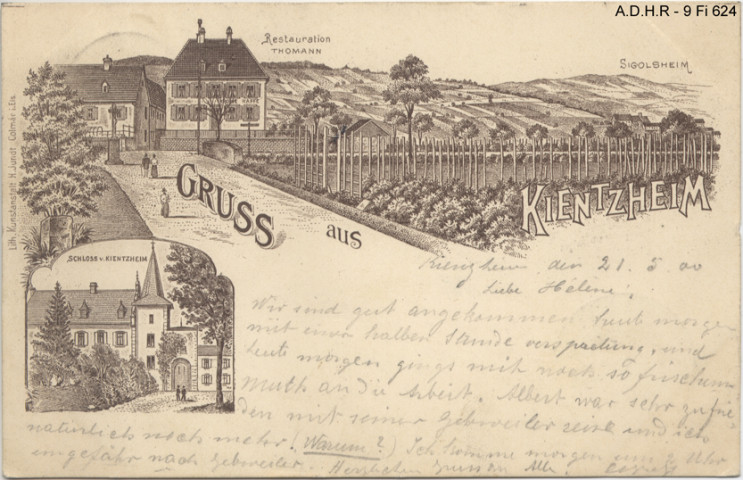 A.D.H.R - 9 Fi 624
Restauration
THOMANN
SIGOLSHEIM
Lith. Kunstanstalt H. Jundt, Colmar i. Els.
GRUSS
aus
KIENTZHEIM
SCHLOSS v. KIENTZHEIM
Kienzheim den 21. 5. 00
Liebe Helene!
Wir sind gut angekommen heut morgen
mit einer halben Stunde verspaetung, und
heute morgen gings mit noch so frischem
Muth an die Arbeit. Albert war sehr zufrie-
den mit seiner Gebweiler und ich
natürlich noch mehr. (Warum?) Ich komme morgen um 2 Uhr
ungefähr nach Gebweiler. Herzlichen Gruss an Alle!